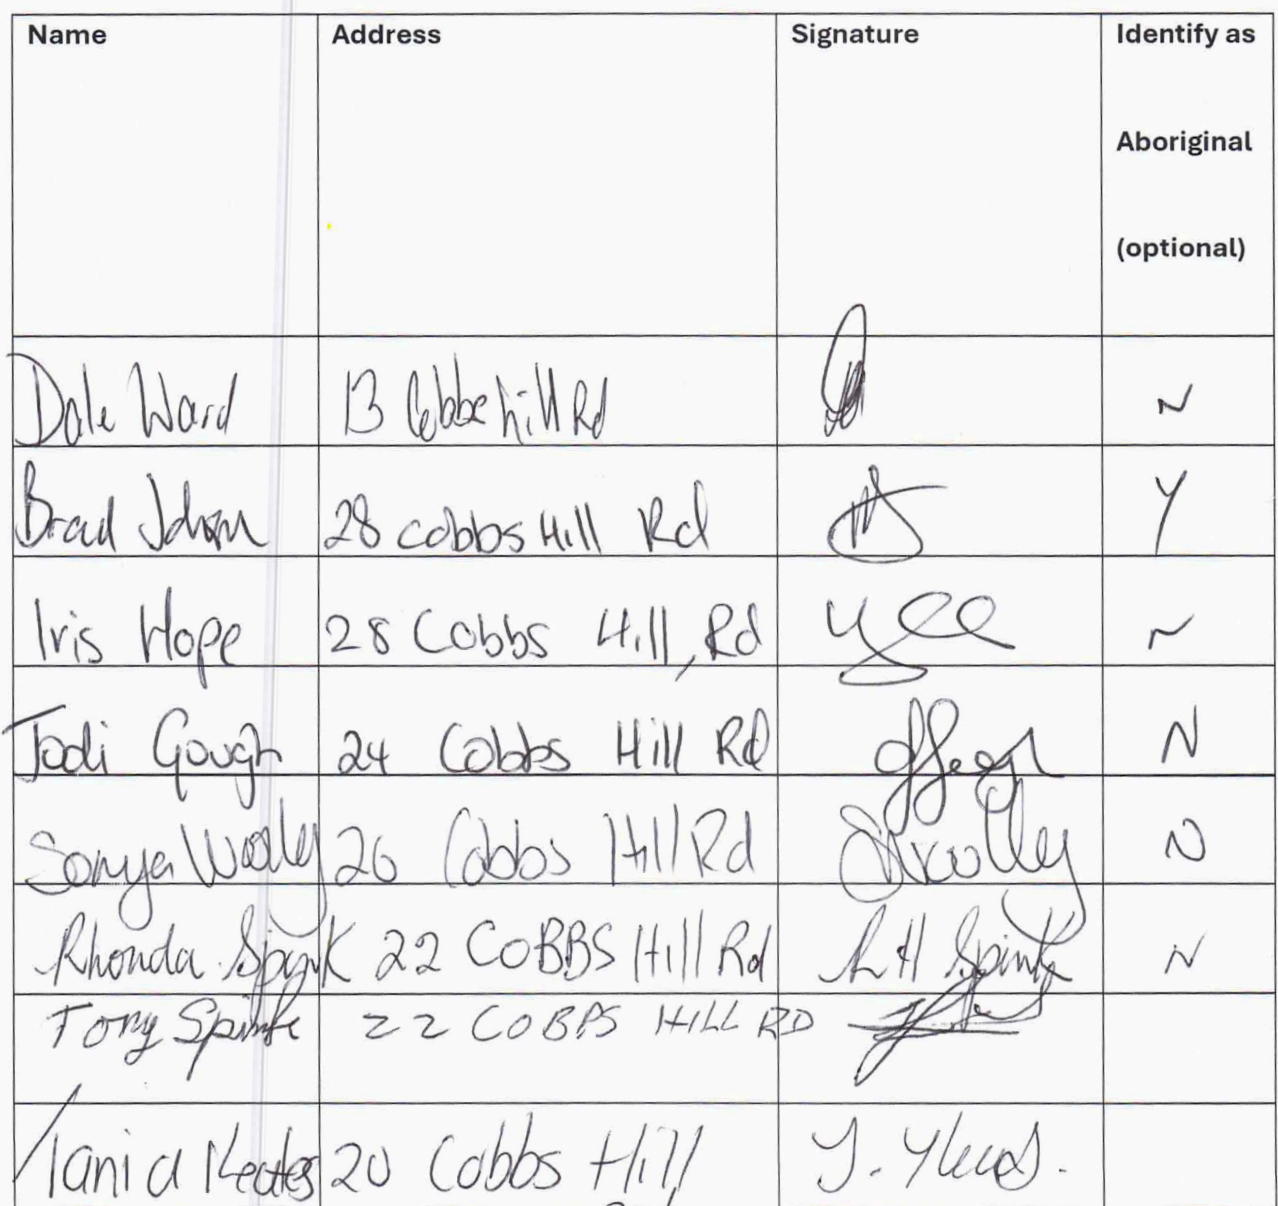 Name Address Signature Identify as
Aboriginal
(optional)
Dale Ward 13 Cobbs hill Rd N
Brad 28 cobbs Hill Rd Y
Iris Hope 28 Cobbs Hill, Rd N
Jodi Gough 24 Cobbs Hill Rd N
Sonya Woolley 26 Cobbs Hill Rd SWoolley N
Rhonda Spink 22 COBBS Hill Rd R H Spink N
Tony Spink 22 COBBS HILL RD
Tania Keates 20 Cobbs Hill